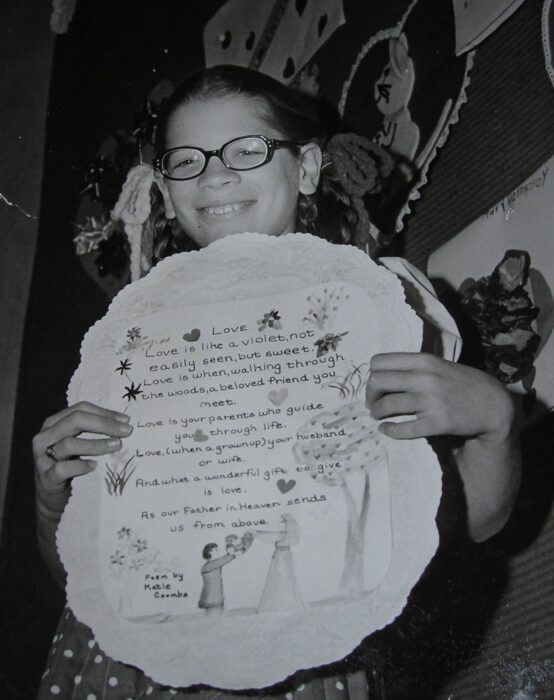 Love
Love is like a violet, not
easily seen, but sweet.
Love is when, walking through
the woods, a beloved friend you
meet.
Love is your parents who guide
you through life.
Love, (when a grownup) your husband
or wife.
And what a wonderful gift to give
is love.
As our Father in Heaven sends
us from above
Poem by
Katie
Coombs